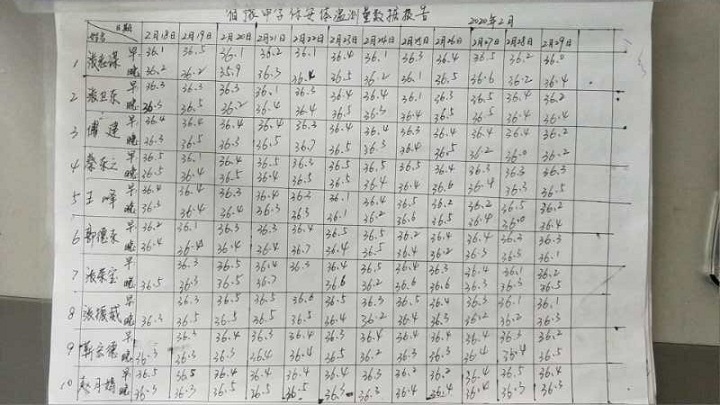 体温测量数据报告
2020年2月
日期 姓名 2月18日 2月19日 2月20日 2月21日 2月22日 2月23日 2月24日 2月25日 2月26日 2月27日 2月28日 2月29日
1 早 36.1 36.5 36.1 36.2 36.1 36.4 36.1 36.3 36.4 36.5 36.2 36.0
晚 36.2 36.2 35.9 36.3 36.5 36.2 36.1 36.5 36.6 36.2 36.4
2 张卫东 早 36.3 36.3 36.3 36.1 36.3 36.4 36.4 36.1 36.3 36.5 36.4 36.2
晚 36.5 36.2 36.4 36.4 36.5 36.3 36.4 36.5 36.5 36.4 36.4
3 傅建 早 36.4 36.4 36.4 36.4 36.3 36.4 36.4 36.3 36.4 36.4 36.4 36.2
晚 36.3 36.5 36.3 36.5 36.5 36.3 36.4 36.5 36.2 36.2
4 早 36.5 36.1 36.4 36.5 36.3 36.5 36.5 36.5 36.4 36.3 36.3 36.3
晚 36.5 36.4 36.5 36.4 36.5 36.5 36.4 36.4 36.6 36.4 36.3 36.5
5 王峰 早 36.4 36.4 36.3 36.4 36.1 36.4 36.5 36.2 36.2 36.5 36.2
晚 36.3 36.4 36.4 36.3 36.3 36.1 36.2 36.6 36.5 36.4 36.4
6 郭德东 早 36.2 36.1 36.3 36.3 36.4 36.5 36.5 36.2 36.4 36.4 36.3 36.3
晚 36.4 36.4 36.4 36.4 36.7 36.4 36.5 36.4 36.2 36.3 36.3 36.1
7 张荣宝 早 36.3 36.5 36.4 36.3 36.4 36.5 36.4 36.3 36.4 36.1 36.2
晚 36.5 36.3 36.5 36.7 36.6 36.2 36.6 36.6 36.3 36.3 36.5
8 早 36.3 36.5 36.5 36.6 36.3 36.5 36.5 36.4 36.3 36.1 36.1
晚 36.3 36.5 36.5 36.5 36.5 36.4 36.2 36.4 36.3 36.2 36.2 36.3
9 靳宏德 早 36.4 36.3 36.4 36.3 36.4 36.5 36.4 36.3 36.3 36.2
晚 36.3 36.3 36.3 36.4 36.4 36.5 36.2 36.3 36.3 36.4 36.4 36.5
10 早 36.5 36.5 36.4 36.4 36.4 36.4 36.3 36.2 36.2 36.4 36.4 36.3
晚 36.3 36.3 36.5 36.5 36.5 36.3 36.3 36.4 36.4 36.4 36.3 36.3